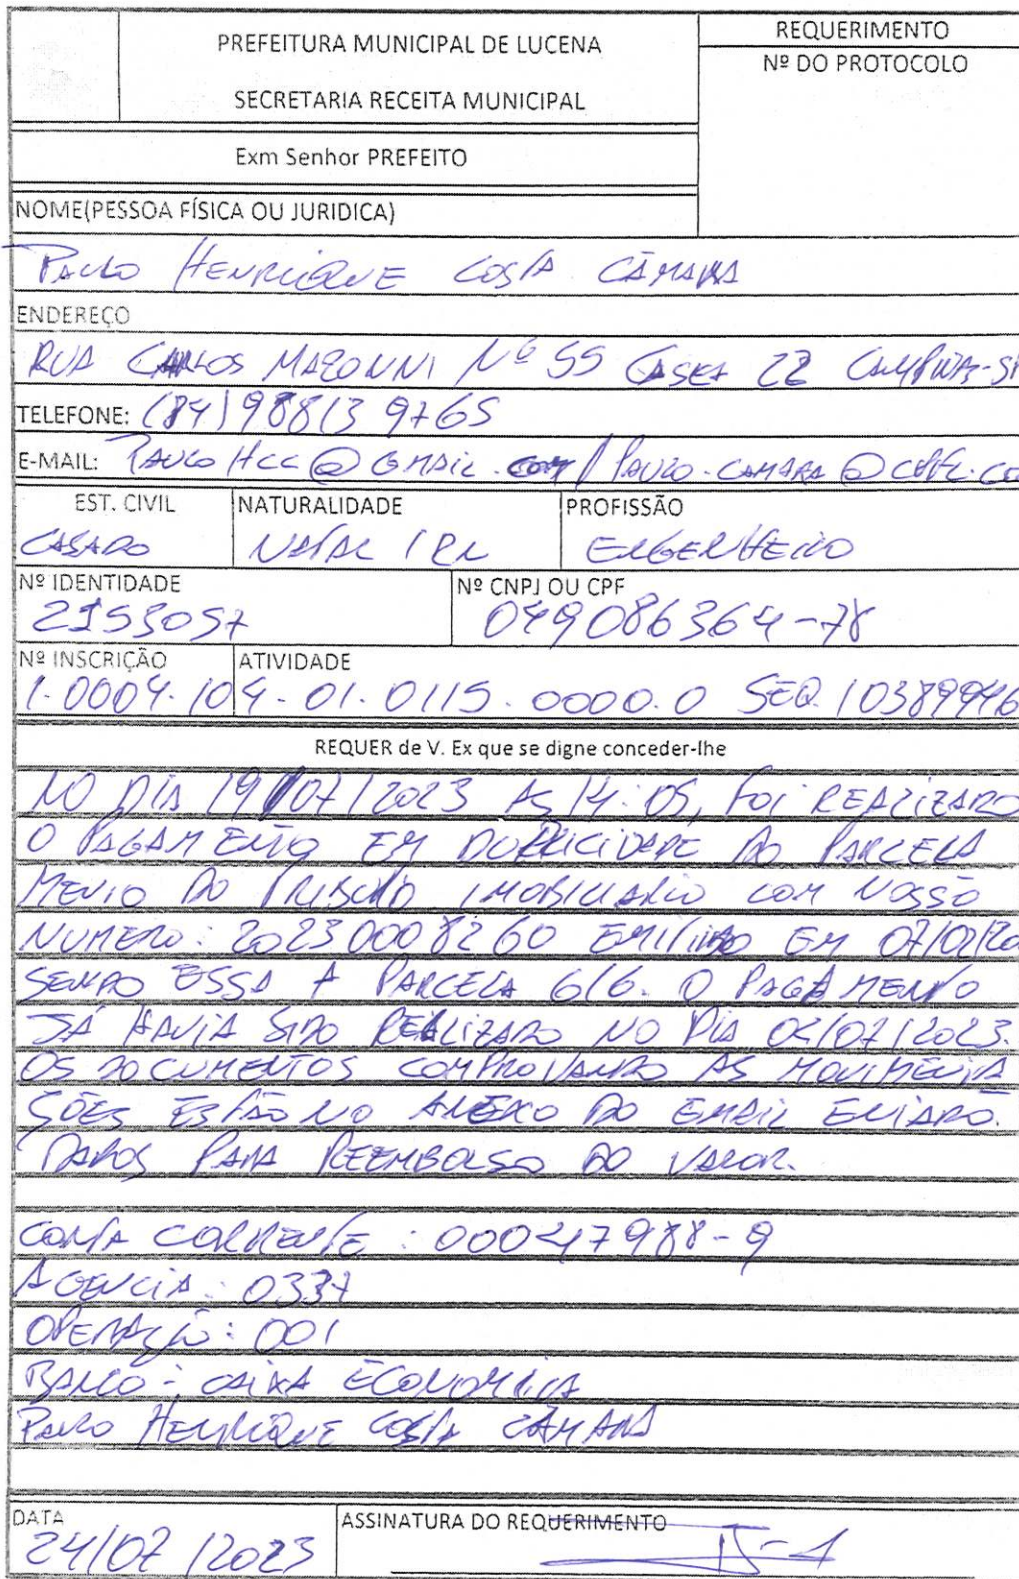 REQUERIMENTO
PREFEITURA MUNICIPAL DE LUCENA
Nº DO PROTOCOLO
SECRETARIA RECEITA MUNICIPAL
Exm Senhor PREFEITO
NOME(PESSOA FÍSICA OU JURIDICA)
PAULO HENRIQUE COSTA CÂMARA
ENDEREÇO
RUA CARLOS MAZONNI Nº 55 CASA 22 CAMPINAS-SP
TELEFONE: (84) 98813 9765
E-MAIL: PAULOHCC@GMAIL.COM / PAULO.CAMARA@CPFL.CO
EST. CIVIL NATURALIDADE PROFISSÃO
CASADO NATAL / RN ENGENHEIRO
Nº IDENTIDADE Nº CNPJ OU CPF
2153057 049086364-78
Nº INSCRIÇÃO ATIVIDADE
1.0004.104.01.0115.0000.0 SEQ. 10389946
REQUER de V. Ex que se digne conceder-lhe
NO DIA 19/07/2023 AS 14:05, FOI REALIZADO
O PAGAMENTO EM DUPLICIDADE DO PARCELA
MENTO DO TRIBUTO IMOBILIARIO COM NOSSO
NUMERO: 20230008260 EMITIDO EM 07/02/20
SENDO ESSA A PARCELA 6/6. O PAGAMENTO
JÁ HAVIA SIDO REALIZADO NO DIA 04/07/2023.
OS DOCUMENTOS COMPROVANDO AS MOVIMENTA
ÇÕES ESTÃO NO ANEXO DO EMAIL ENIADO.
DADOS PARA REEMBOLSO DO VALOR.
CONTA CORRENTE: 00047988-9
AGENCIA: 0337
OPERAÇÃO: 001
BANCO - CAIXA ECONOMICA
PAULO HENRIQUE COSTA CÂMARA
DATA ASSINATURA DO REQUERIMENTO
24/07/2023